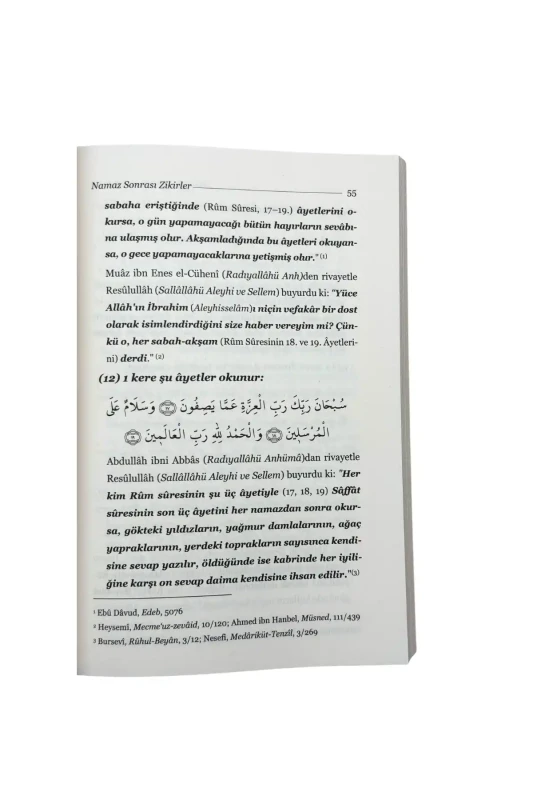 Namaz Sonrası Zikirler 55
sabaha eriştiğinde (Rûm Sûresi, 17–19.) âyetlerini o-
kursa, o gün yapamayacağı bütün hayırların sevâbı-
na ulaşmış olur. Akşamladığında bu âyetleri okuyan-
sa, o gece yapamayacaklarına yetişmiş olur." (1)
Muâz ibn Enes el-Cühenî (Radıyallâhü Anh)den rivayetle
Resûlullâh (Sallâllâhü Aleyhi ve Sellem) buyurdu ki: "Yüce
Allâh'ın İbrahim (Aleyhisselâm)ı niçin vefakâr bir dost
olarak isimlendirdiğini size haber vereyim mi? Çün-
kü o, her sabah-akşam (Rûm Sûresinin 18. ve 19. Âyetleri-
ni) derdi." (2)
(12) 1 kere şu âyetler okunur:
سُبْحَانَ رَبِّكَ رَبِّ الْعِزَّةِ عَمَّا يَصِفُونَ ﴿١٨٠﴾ وَسَلَامٌ عَلَى
الْمُرْسَلِينَ ﴿١٨١﴾ وَالْحَمْدُ لِلّٰهِ رَبِّ الْعَالَمِينَ ﴿١٨٢﴾
Abdullâh ibni Abbâs (Radıyallâhü Anhümâ)dan rivayetle
Resûlullâh (Sallâllâhü Aleyhi ve Sellem) buyurdu ki: "Her
kim Rûm sûresinin şu üç âyetiyle (17, 18, 19) Sâffât
sûresinin son üç âyetini her namazdan sonra okur-
sa, gökteki yıldızların, yağmur damlalarının, ağaç
yapraklarının, yerdeki toprakların sayısınca kendi-
sine sevap yazılır, öldüğünde ise kabrinde her iyili-
ğine karşı on sevap daima kendisine ihsan edilir."(3)
1 Ebû Dâvud, Edeb, 5076
2 Heysemî, Mecme'uz-zevâid, 10/120; Ahmed ibn Hanbel, Müsned, 111/439
3 Bursevî, Rûhul-Beyân, 3/12; Nesefî, Medâriküt-Tenzîl, 3/269